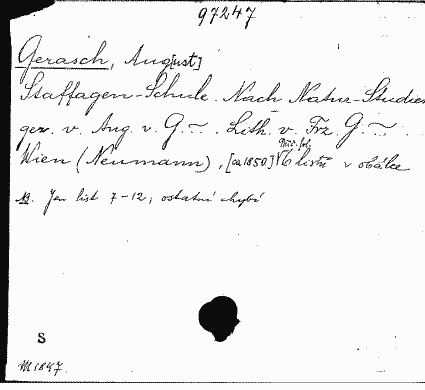 97247
Gerasch, Aug[ust]
Staffagen-Schule. Nach Natur-Studien
gez. v. Aug. v. G~. Lith. v. Frz. G~.
Wien (Neumann), [ca 1850] 6 listů v obálce
NB. Jen list 7-12, ostatní chybí
S